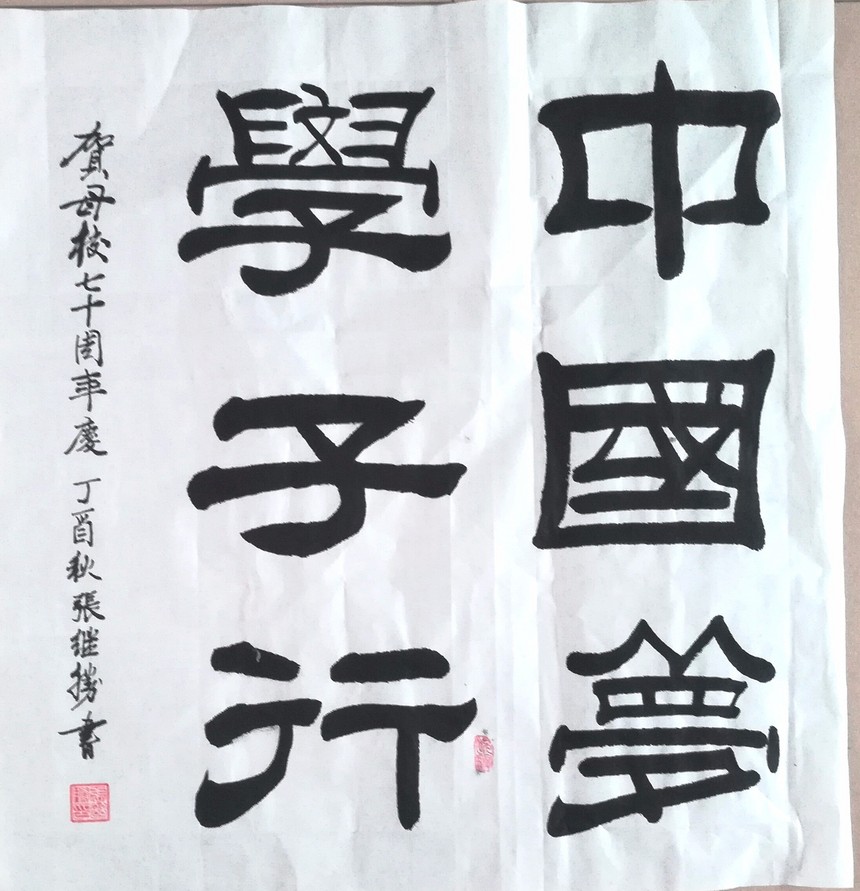 中國夢
學子行
贺母校七十周年慶 丁酉秋張继勝書